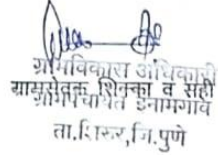 ग्रामविकास अधिकारी
ग्रामसेवक शिक्का व सही
ग्रामपंचायत इनामगाव
ता.शिरूर,जि.पुणे